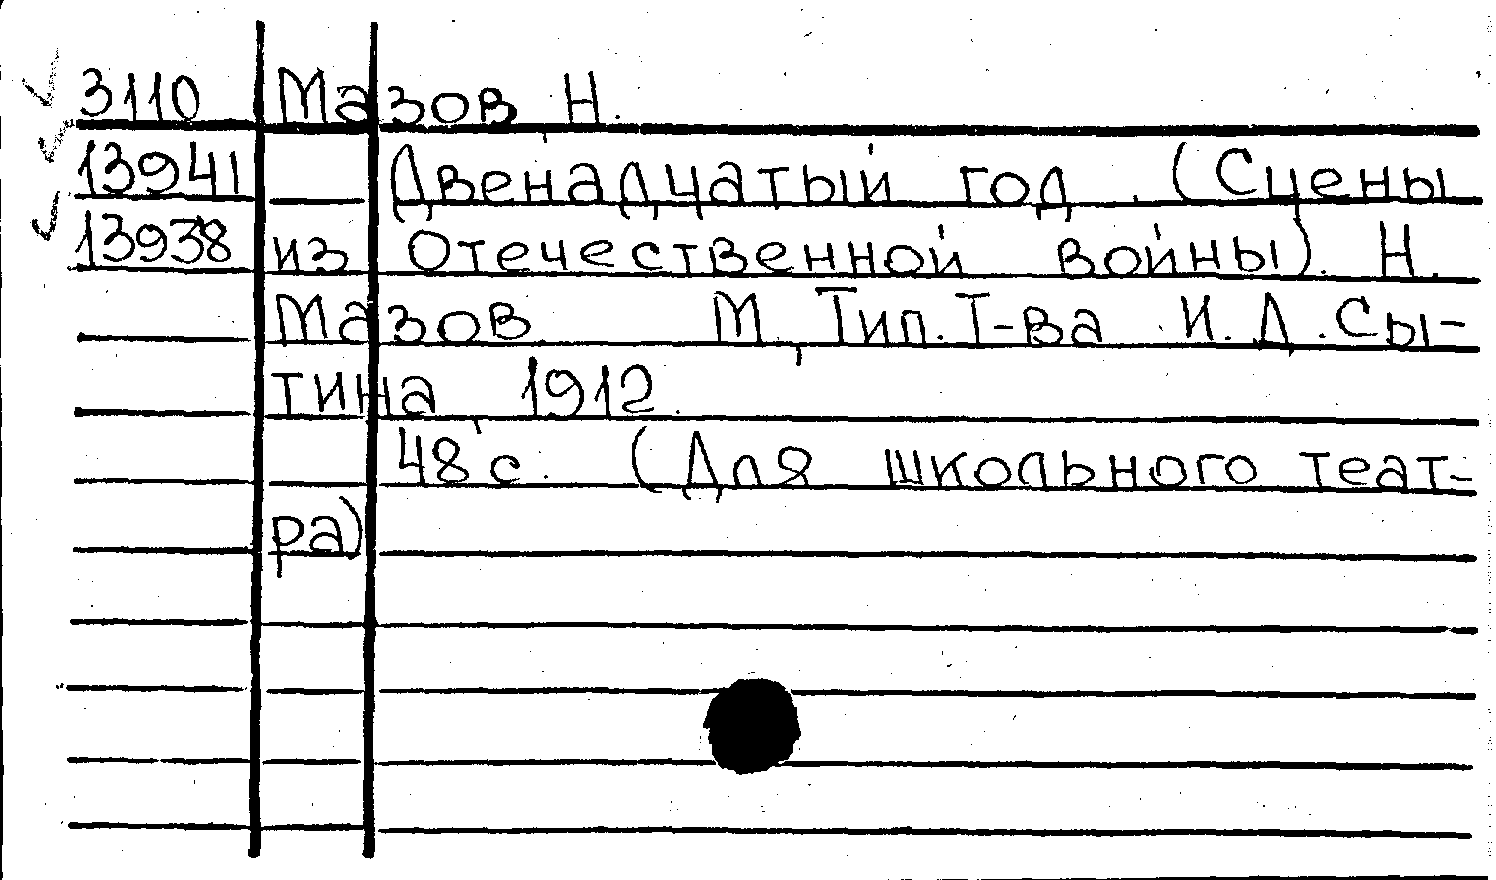 3110 Мазов Н.
13941 — Двенадцатый год. (Сцены
13938 из Отечественной войны). Н.
Мазов М, Тип. Т-ва И. Д. Сы-
тина 1912.
48 с. (Для школьного теат-
ра)